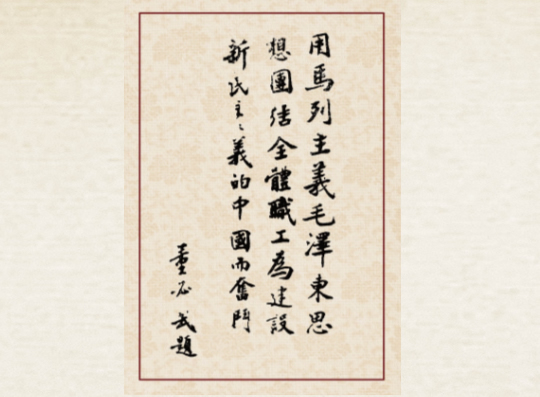 用馬列主義毛澤東思
想團結全體職工為建設
新民主々義的中國而奮鬥
董必武題